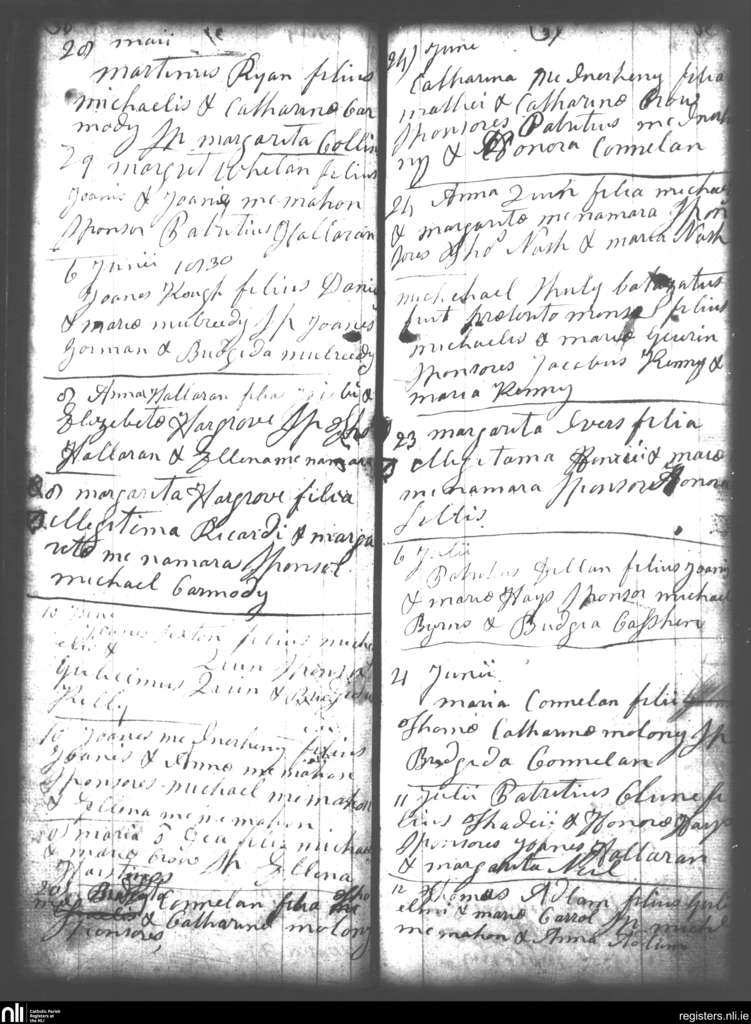 28 maii
Martinus Ryan filius
michaelis & Catharinæ Car
mody Sp margarita Collin
29 margret Whelan filius
Joanis & Joanis mcmahon
Sponsor Patritius Hallaran
6 Junii 1830
Joanes Keogh filius Danie
& mariæ mulreedy Sp Joanes
Gorman & Bridgida mulreedy
8 Anna Hallaran filia
Elizebetæ Hargrove Sp Tho
Hallaran & Ellena mcnamara
8 margarita Hargrove filia
illegitima Ricardi & marga
retæ mcnamara Sponsor
michael Carmody
10 June
Joanes Sexton filius mich
elis & Quin Sponsor
Gulielmus Quin & Bridgida
Kelly
10 Joanes mcInerheny filius
Joanis & Annæ mcmahon
Sponsores michael mcmahon
& Ellena mcmahon
20 maria O Gea filia michael
& mariæ Crow Sp Ellena
Bridgida Connelan filia Tho
& Catharinæ molony
Sponsores
24 June
Catharina McInerheny filia
mathei & Catharinæ Crow
Sponsores Patritius mcInerh
ny & Honora Connelan
24 Anna Quin filia michael
& margaritæ mcnamara Spon
sores Tho Nash & maria Nash
michael
fuit filius
michaelis & mariæ Guerin
Sponsores Jacobus Kenny &
maria Kenny
23 margarita Ivers filia
illegitama & mariæ
mcnamara Sponsor Honora
6 Julii
Patritius Dillan filius Joanis
& mariæ Hays Sponsor michael
Byrns & Bridgida
21 Junii
maria Connelan filii
Thomæ Catharinæ molony Sp
Bridgida Connelan
11 Julii Patritius Clune fi
lius Thadeii & Honoræ Hays
Sponsores Joanes Hallaran
& margarita Neil
12 Thomas Adlam filius Guli
elmi & mariæ Carrol Sp mich
mcmahon & Anna
nli
Catholic Parish
Registers at
the NLI
registers.nli.ie